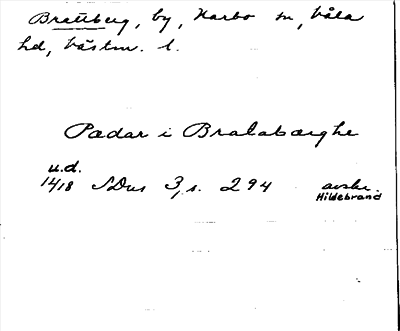 Brattberg, by, Karbo sn, Våla
hd, Västm. l.
Pædar i Bralabærghe
u.d.
1418 SDns 3, s. 294 avskr.
Hildebrand